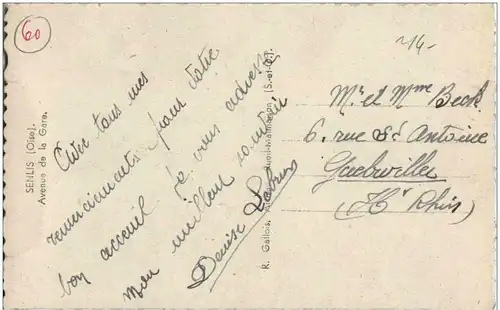 60
SENLIS (Oise).
Avenue de la Gare.
Avec tous mes
remerciements pour votre
bon acceuil je vous adresse
mon meilleur souvenir
Denise
R. Gallois,
(S.-et-O.).
Mr et Mme Beck
6. rue St Antoine
Guebwiller
(Ht Rhin)